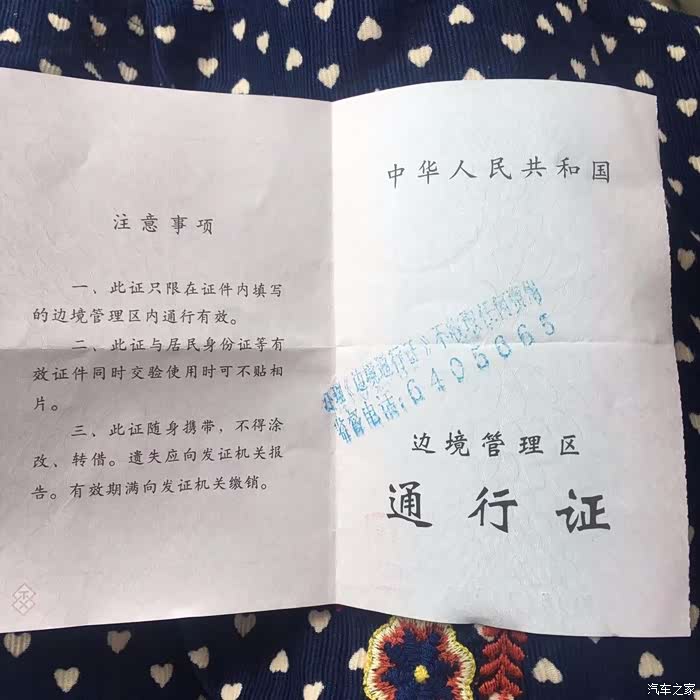 注意事项
一、此证只限在证件内填写
的边境管理区内通行有效。
二、此证与居民身份证等有
效证件同时交验使用时可不贴相
片。
三、此证随身携带，不得涂
改、转借。遗失应向发证机关报
告。有效期满向发证机关缴销。
中华人民共和国
《边境通行证》不收取任何费用
监督电话:6405665
边境管理区
通行证
汽车之家